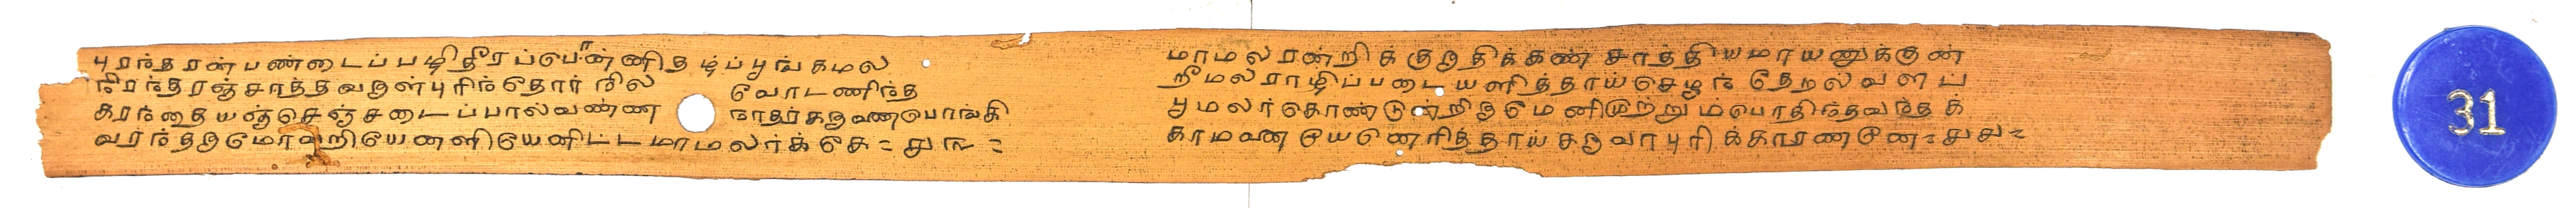 புரந்தரன்பண்டைப்பழிதீரப்பொன்னிதழ்ப்பூங்கமல
நிரந்தரஞ்சாத்தவருள்புரிந்தோர் நில வோடணிந்த
கரந்தையஞ்செஞ்சடைப்பால்வண்ண நாதர்கருணைபொங்கி
வரந்தருமோவறியேனளியேனிட்டமாமலர்க்கே
மாமலரன்றிக்குருதிக்கண்சாத்தியமாயனுக்குன்
றீமலராழிப்படையளித்தாய்செழுந் தேறல்வளப்
பூமலர்கொண்டுன்றிருமேனிமுற்றும்பொதிந்தவந்தக்
காமவனையேனெரித்தாய் கருவாபுரிக்காரணனே
31